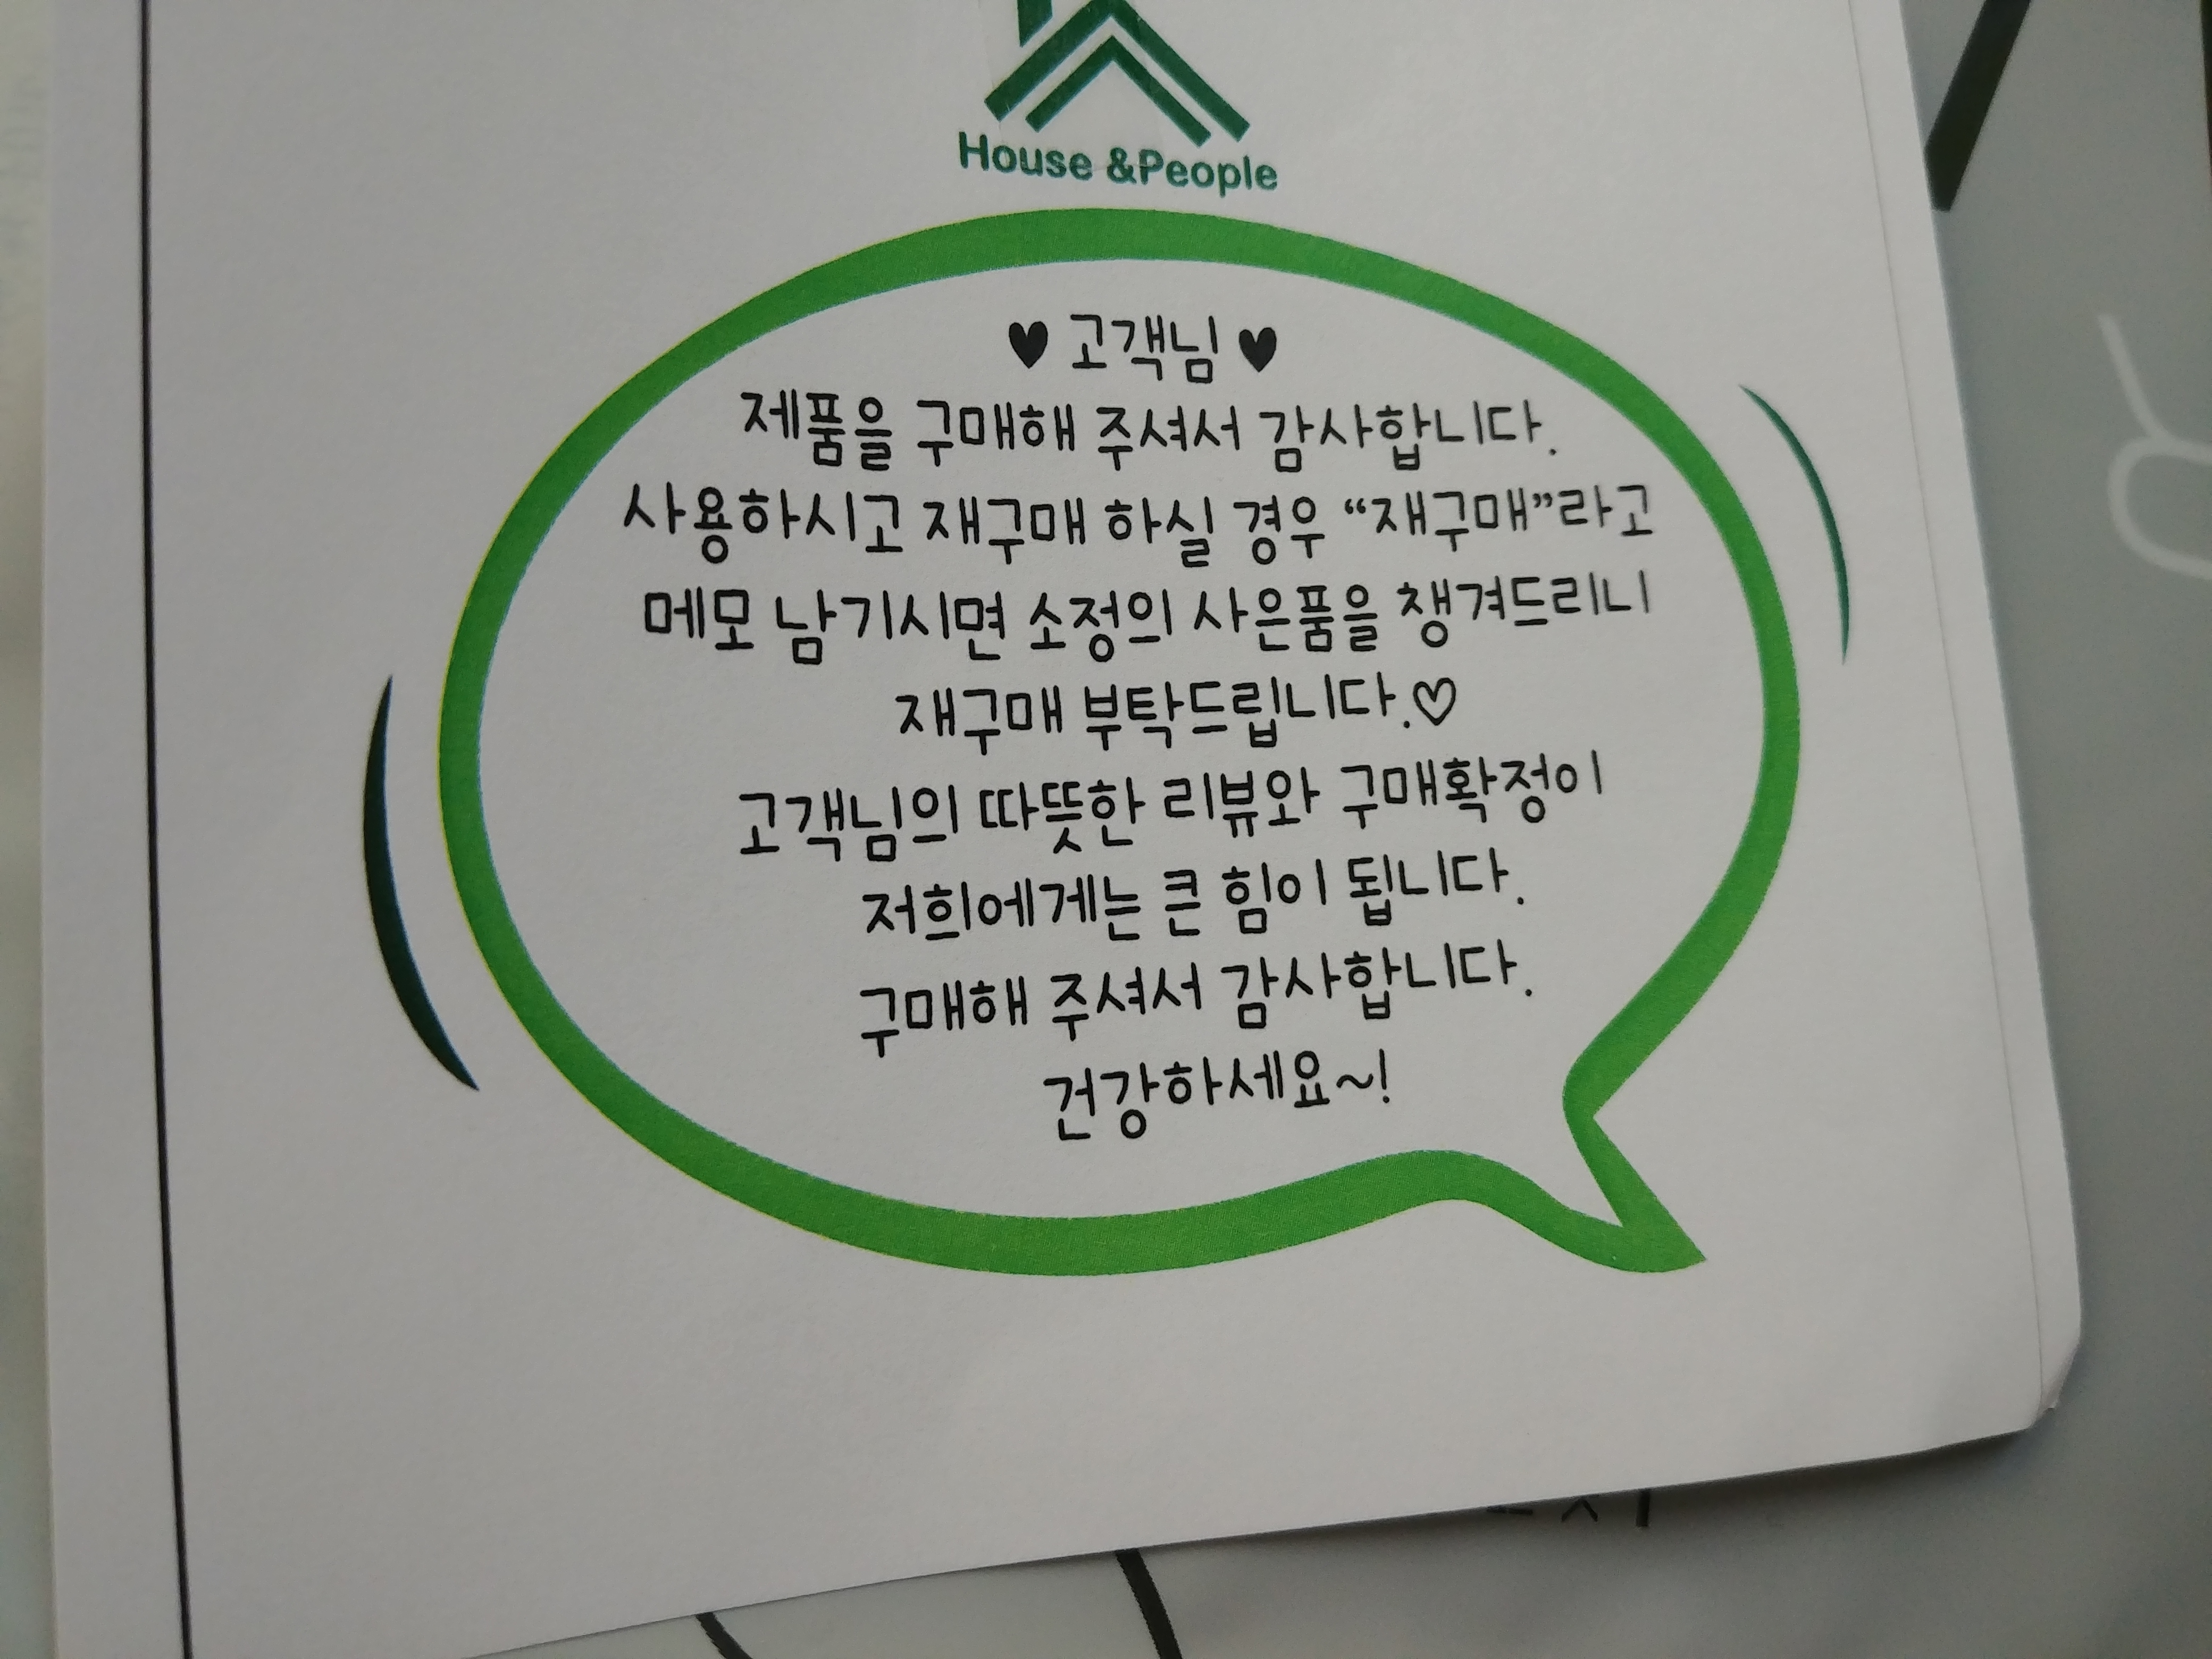 House &People
♥ 고객님 ♥
제품을 구매해 주셔서 감사합니다.
사용하시고 재구매 하실 경우 “재구매”라고
메모 남기시면 소정의 사은품을 챙겨드리니
재구매 부탁드립니다.♡
고객님의 따뜻한 리뷰와 구매확정이
저희에게는 큰 힘이 됩니다.
구매해 주셔서 감사합니다.
건강하세요~!